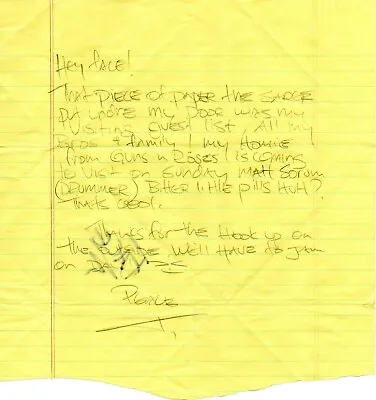 Hey face!
That piece of paper the Sarge
put where my door was my
visiting guest list, all my
Bros & family! my Homie
from Guns n Roses! is coming
to visit on Sunday Matt Sorum
(Drummer) Bitter little pills Huh?
Thats cool.
Thanks for the Hook up on
the outside we'll have to jam
on
Peace